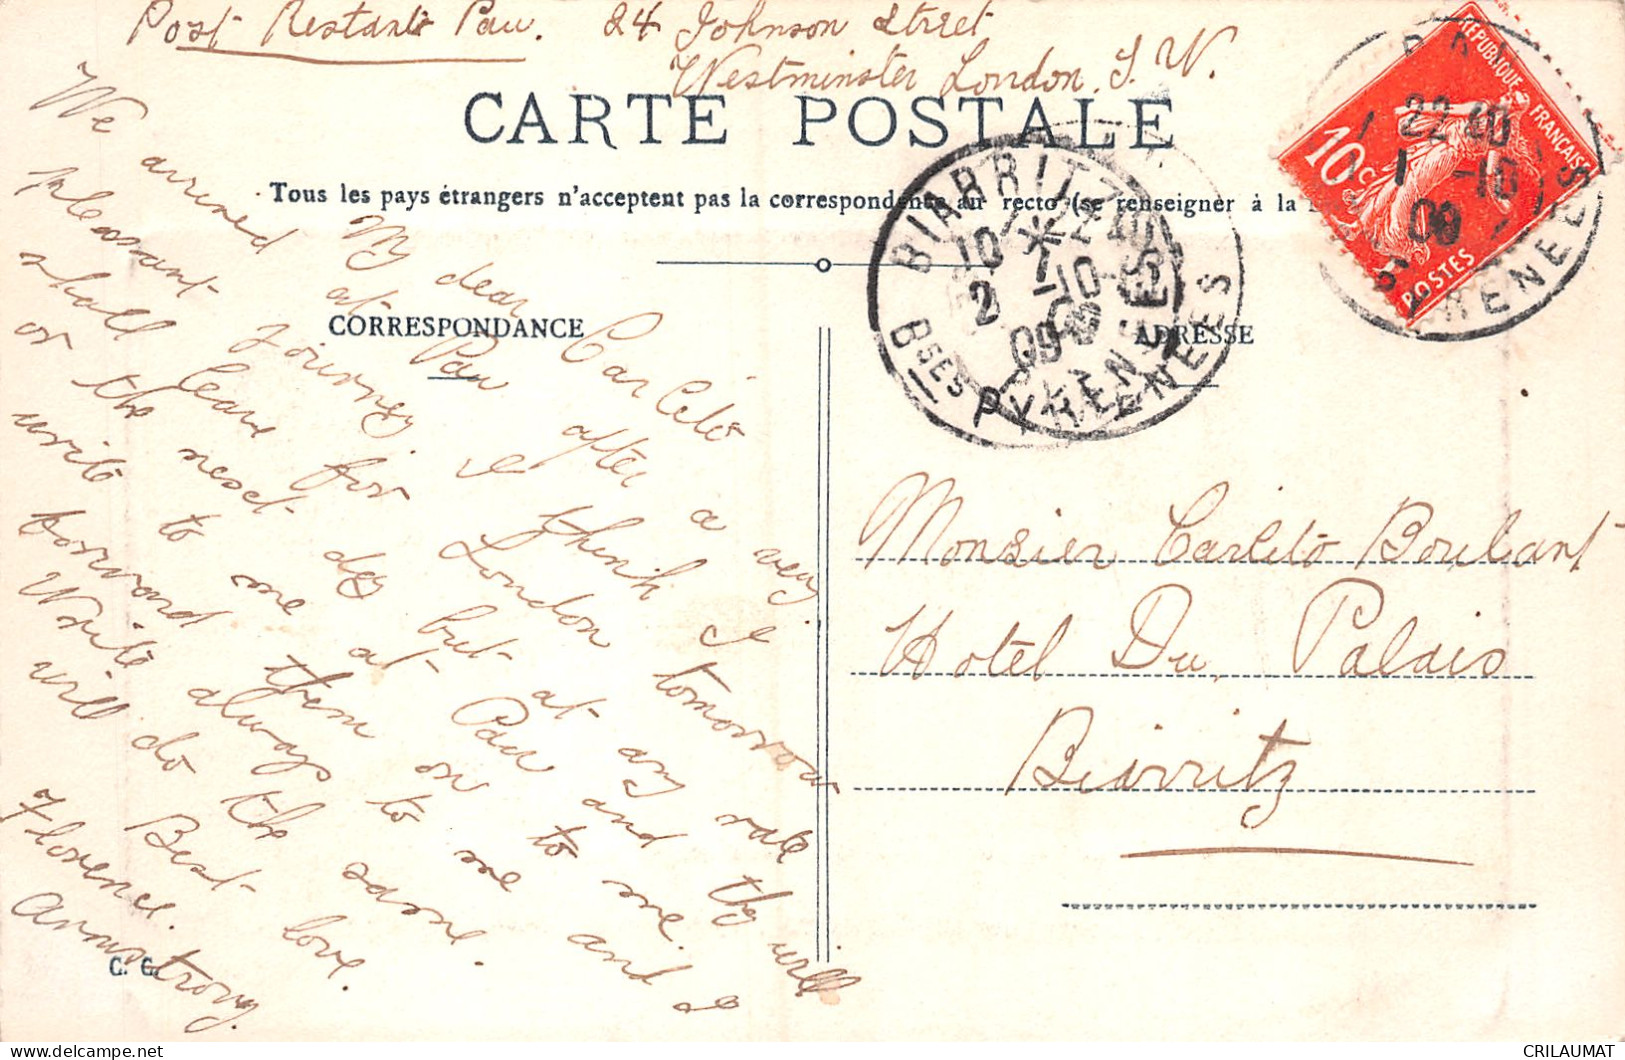 Post Restante Pau. 24 Johnson Street
Westminster London. S. W.
CARTE POSTALE
Tous les pays étrangers n'acceptent pas la correspondance au recto (se renseigner à la
CORRESPONDANCE
ADRESSE
My dear Carlito
We arrived at Pau after a very
pleasant journey & I think I
shall leave for London tomorrow
or the next day but at any rate
write to me at Pau and they will
forward them on to me and I
Write always to me
will do the same.
Best love.
Florence.
Armstrong.
C. C.
Monsier Carlito Boulant
Hotel Du Palais
Biarritz
BIARRITZ
10 *
2 -10
09
Bses PYRENEES
22 40
1 -10
09
PYRENEES
REPUBLIQUE FRANÇAISE
10c
POSTES
CRILAUMAT